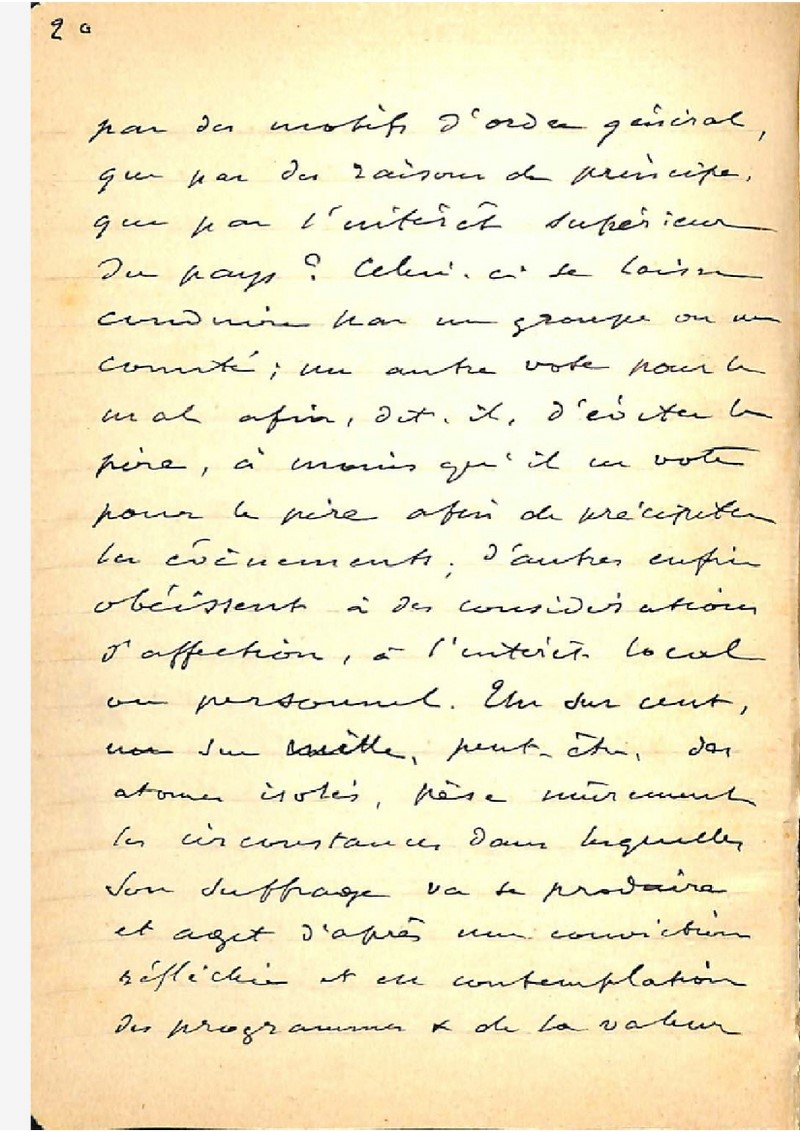 2 a
par des motifs d'ordre général,
que par des raisons de principe,
que par l'intérêt supérieur
du pays ? Celui-ci se laisse
conduire par un groupe ou un
comité ; un autre vote pour le
mal afin, dit-il, d'éviter le
pire, à moins qu'il ne vote
pour le pire afin de précipiter
les événements ; d'autres enfin
obéissent à des considérations
d'affection, à l'intérêt local
ou personnel. Un sur cent,
non sur mille, peut-être, des
atomes isolés, pèse mûrement
les circonstances dans lesquelles
son suffrage va se produire
et agit d'après une conviction
réfléchie et en contemplation
des programmes & de la valeur